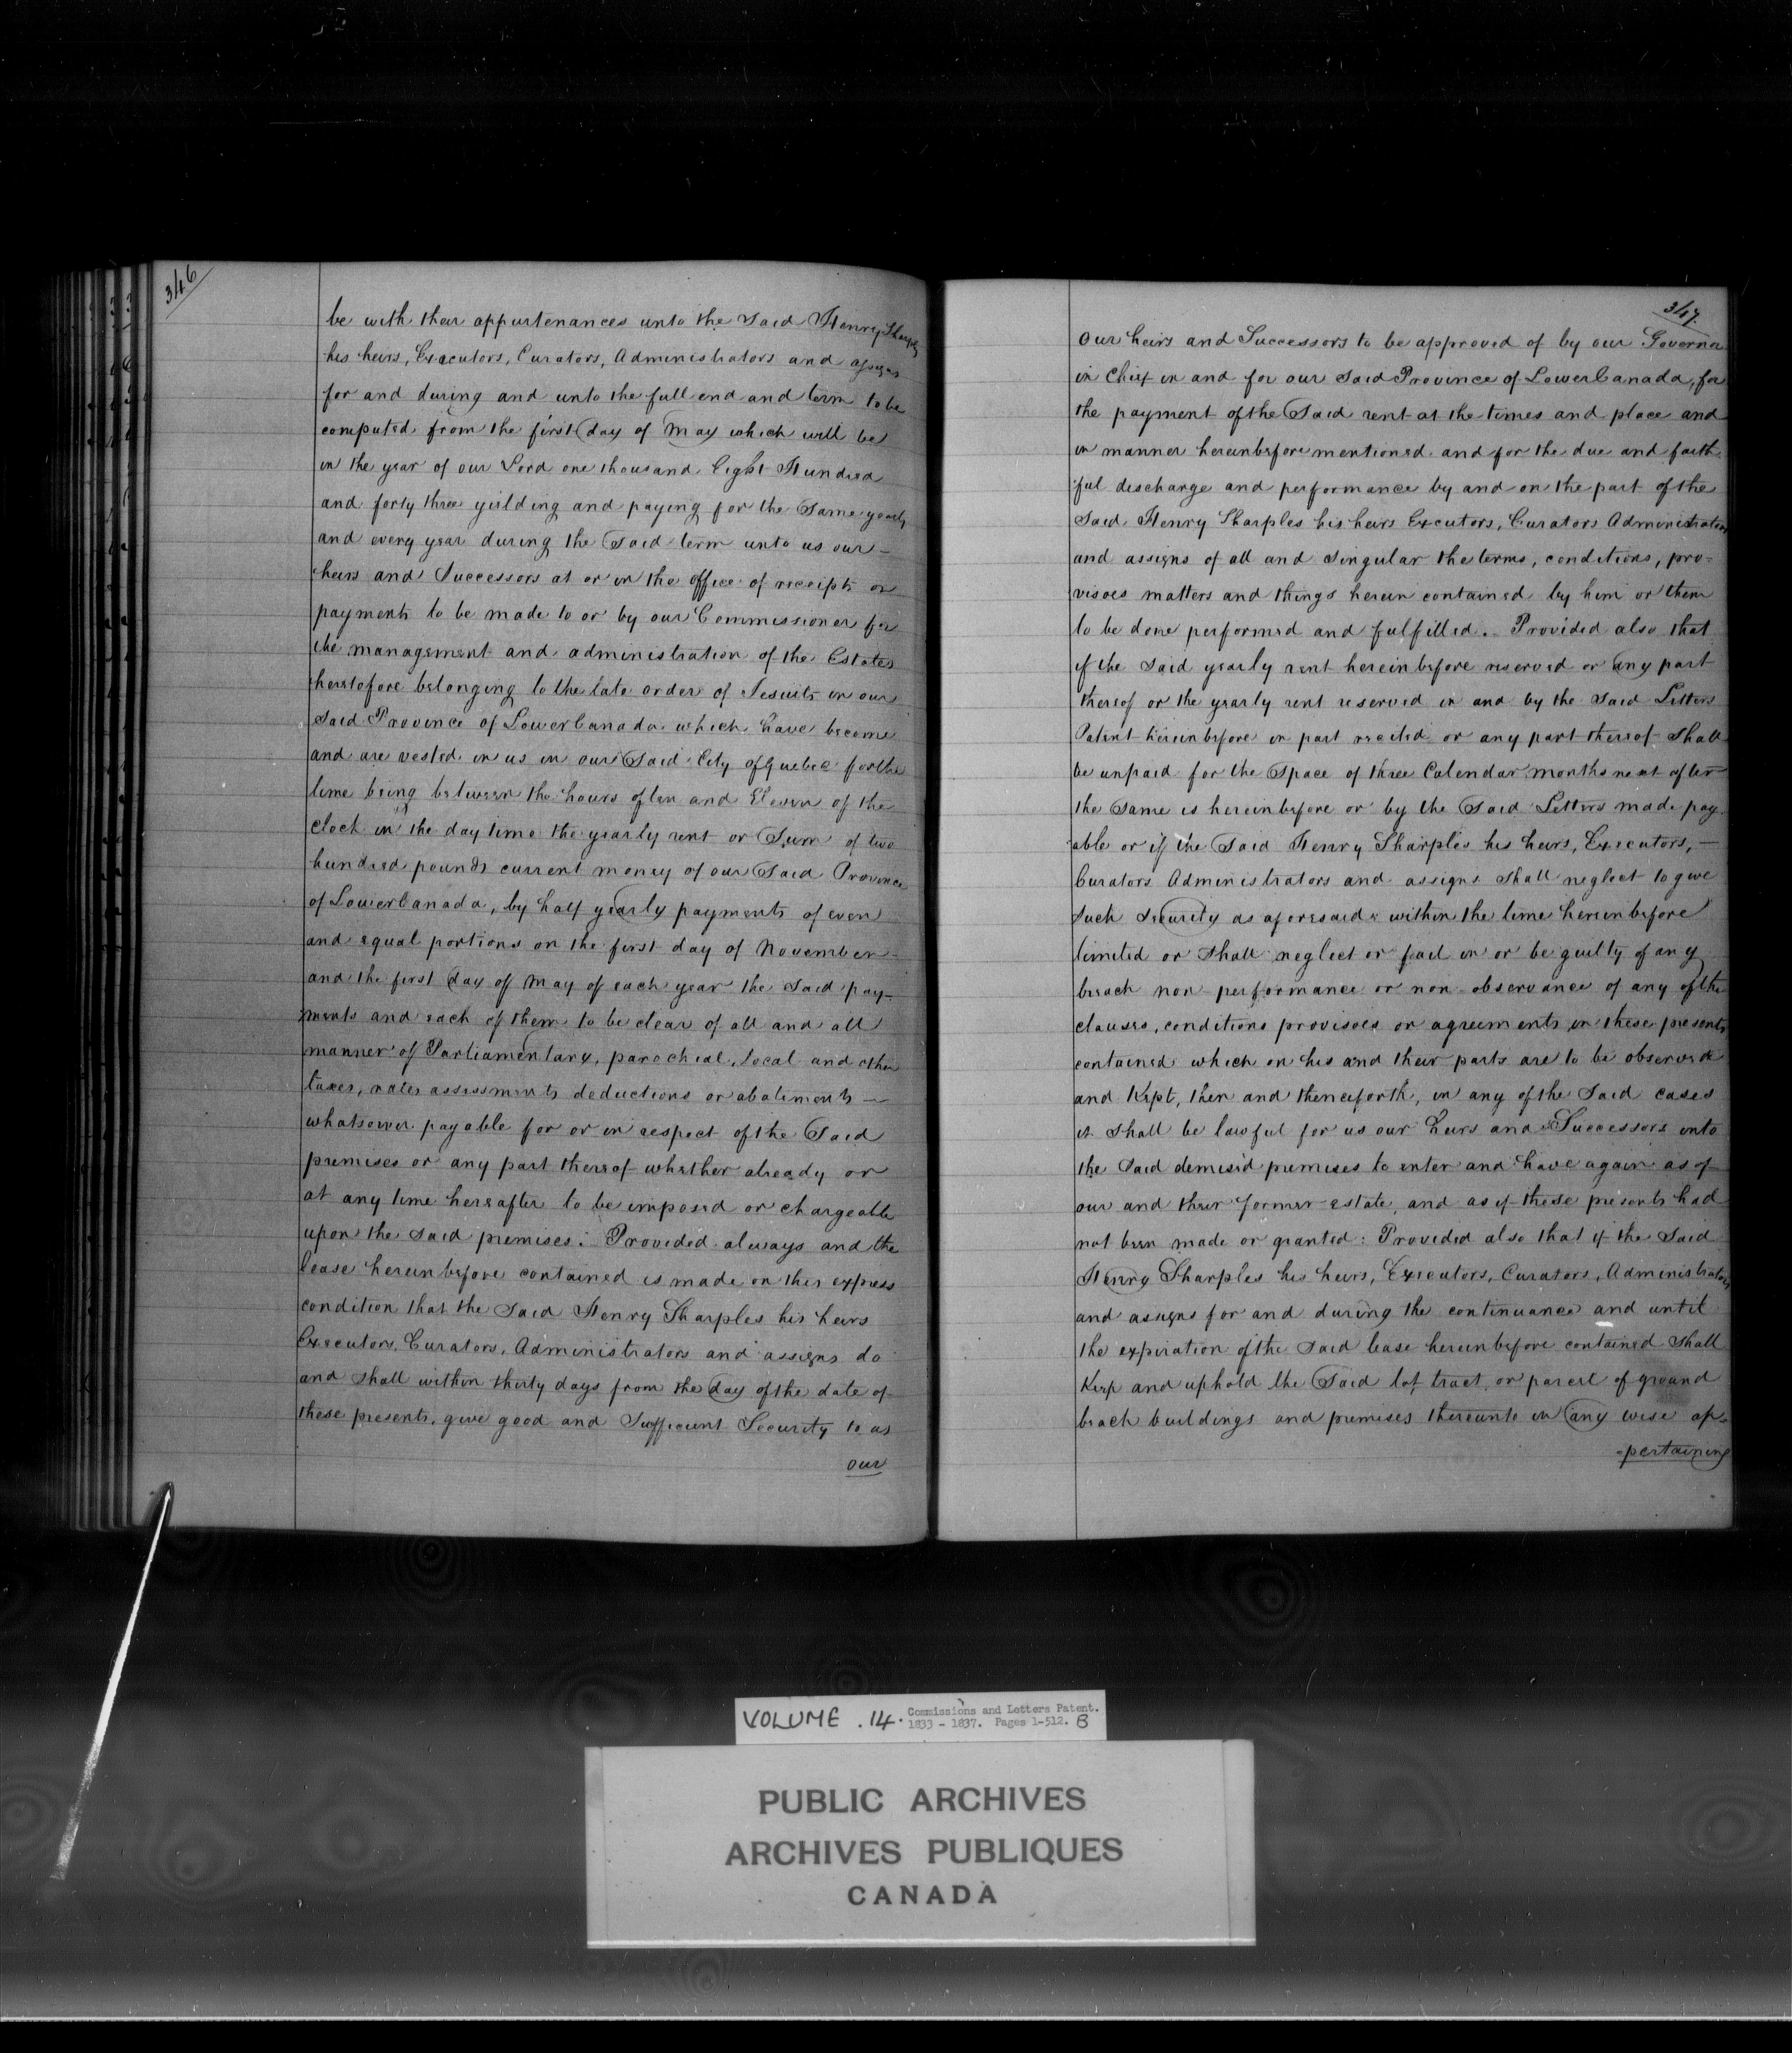 346
be with their appurtenances unto the said Henry Sharples
his heirs, Executors, Curators, Administrators and assigns
for and during and unto the full end and term to be
computed from the first day of May which will be
in the year of our Lord one thousand Eight Hundred
and forty three yielding and paying for the Same yearly
and every year during the Said term unto us our -
heirs and Successors at or in the office of receipts or
payments to be made to or by our Commissioner for
the management and administration of the Estates
heretofore belonging to the late order of Jesuits in our
said Province of Lower Canada which have become
and are vested in us in our Said City of Quebec for the
time being between the hours of ten and Eleven of the
clock in the day time the yearly rent or Sum of two
hundred pounds current money of our Said Province
of Lower Canada, by half yearly payments of even
and equal portions on the first day of November -
and the first day of May of each year the Said pay-
ments and each of them to be clear of all and all
manner of Parliamentary, parochial, local and other
taxes, rates assessments deductions or abatements —
whatsoever payable for or in respect of the Said
premises or any part thereof whether already or
at any time hereafter to be imposed or chargeable
upon the said premises: Provided always and the
lease herein before contained is made on this express
condition that the Said Henry Sharples his heirs
Executors, Curators, Administrators and assigns do
and shall within thirty days from the day of the date of
these presents, give good and Sufficient Security to us
our
347
our heirs and Successors to be approved of by our Governor
in Chief in and for our said Province of Lower Canada, for
the payment of the Said rent at the times and place and
in manner hereinbefore mentioned and for the due and faith
ful discharge and performance by and on the part of the
Said Henry Sharples his heirs Executors, Curators Administrators
and assigns of all and singular the terms, conditions, pro-
visoes matters and things herein contained by him or them
to be done performed and fulfilled. Provided also that
if the said yearly rent hereinbefore reserved or any part
thereof or the yearly rent reserved in and by the said Letters
Patent hereinbefore in part recited or any part thereof Shall
be unpaid for the Space of three Calendar months next after
the Same is hereinbefore or by the Said Letters made pay
able or if the Said Henry Sharples his heirs, Executors, —
Curators Administrators and assigns shall neglect to give
such security as aforesaid within the time hereinbefore
limited or shall neglect or fail in or be guilty of any
breach non performance or non-observance of any of the
clauses, conditions provisoes or agreements in these presents
contained which on his and their parts are to be observed
and Kept, then and thenceforth, in any of the Said cases
it shall be lawful for us our heirs and Successors into
the said demised premises to enter and have again as of
our and their former estate, and as if these presents had
not been made or granted: Provided also that if the Said
Henry Sharples his heirs, Executors, Curators, Administrators
and assigns for and during the continuance and until
the expiration of the said lease hereinbefore contained shall
Keep and uphold the Said lot tract, or parcel of ground
beach buildings and premises thereunto in any wise ap-
-pertaining
VOLUME .14. Commissions and Letters Patent.
1833 - 1837. Pages 1-512. B
PUBLIC ARCHIVES
ARCHIVES PUBLIQUES
CANADA